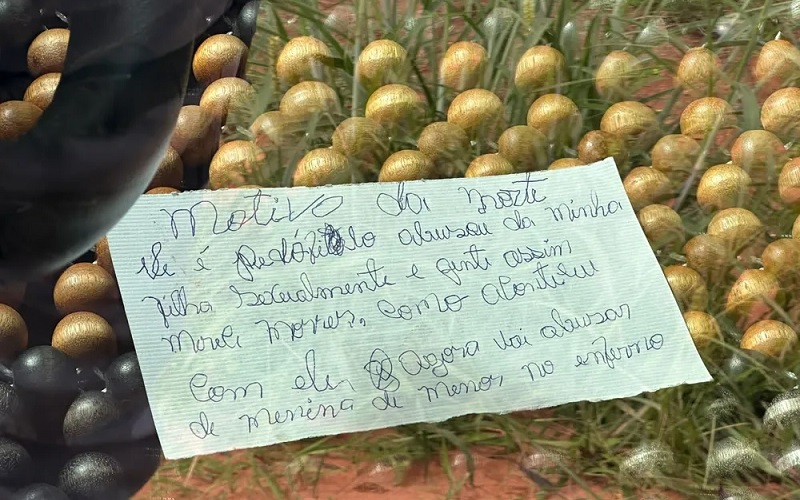 Motivo da morte
Ele é pedófilo abusou da minha
filha Sexualmente e gente assim
mereci morrer, como aconteceu
com ele, Agora vai abusar
de menina de menor no enferno